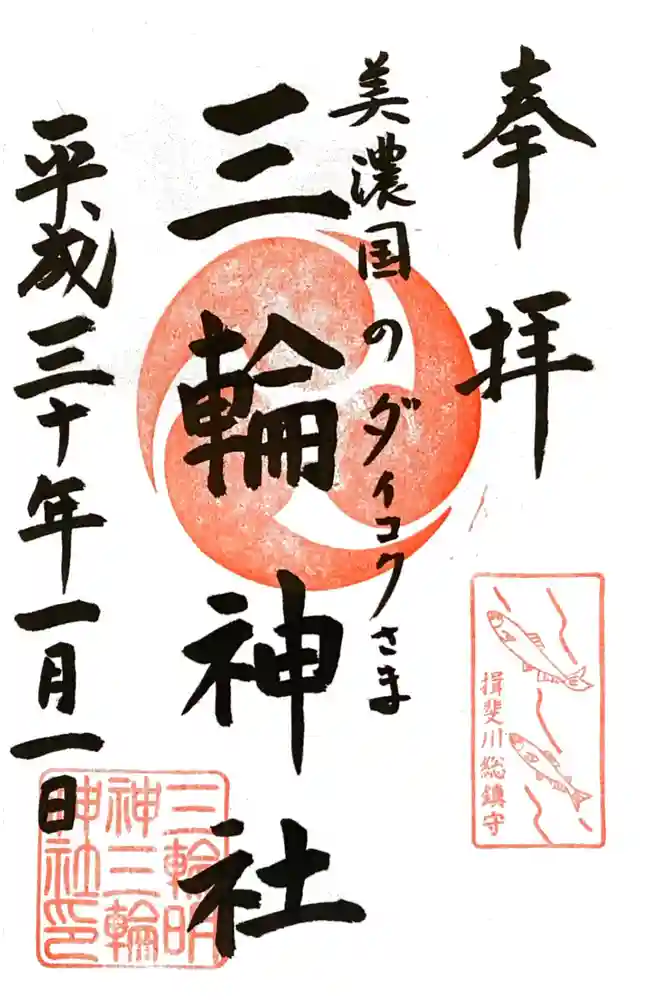 奉拝
美濃国のダイコクさま
三輪神社
平成三十年一月一日
揖斐川総鎮守
三輪明
神三輪
神社印